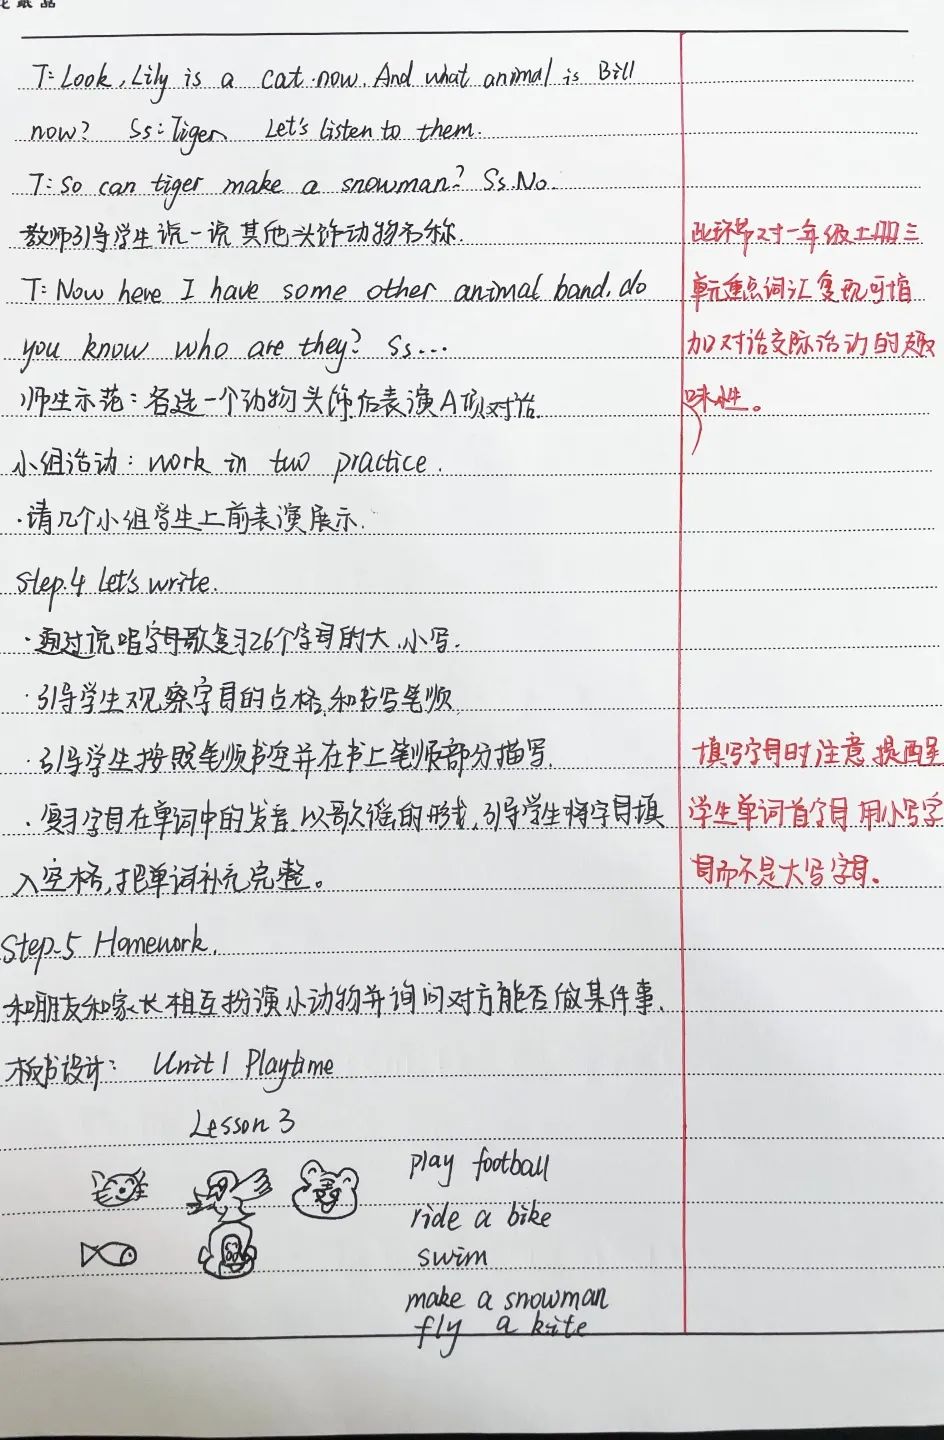 T: Look, Lily is a cat now. And what animal is Bill
now? Ss: Tiger. Let's listen to them.
T: So can tiger make a snowman? Ss: No.
教师引导学生说一说其他头饰动物名称.
T: Now here I have some other animal band, do
you know who are they? Ss...
师生示范: 各选一个动物头饰后表演A项对话.
小组活动: work in two practice.
·请几个小组学生上前表演展示.
Step.4 Let's write.
·通过说唱字母歌复习26个字母的大、小写.
·引导学生观察字母的占格和书写笔顺
·引导学生按照笔顺书空并在书上笔顺部分描写.
·复习字母在单词中的发音,以歌谣的形式,引导学生将字母填
入空格,把单词补充完整。
Step.5 Homework.
和朋友和家长相互扮演小动物并询问对方能否做某件事.
板书设计: Unit 1 Playtime
Lesson 3
play football
ride a bike
swim
make a snowman
fly a kite
此环节对一年级上册三
单元重点词汇复现可增
加对话交际活动的趣
味性。
填写字母时注意提醒
学生单词首字母用小写字
母而不是大写字母.